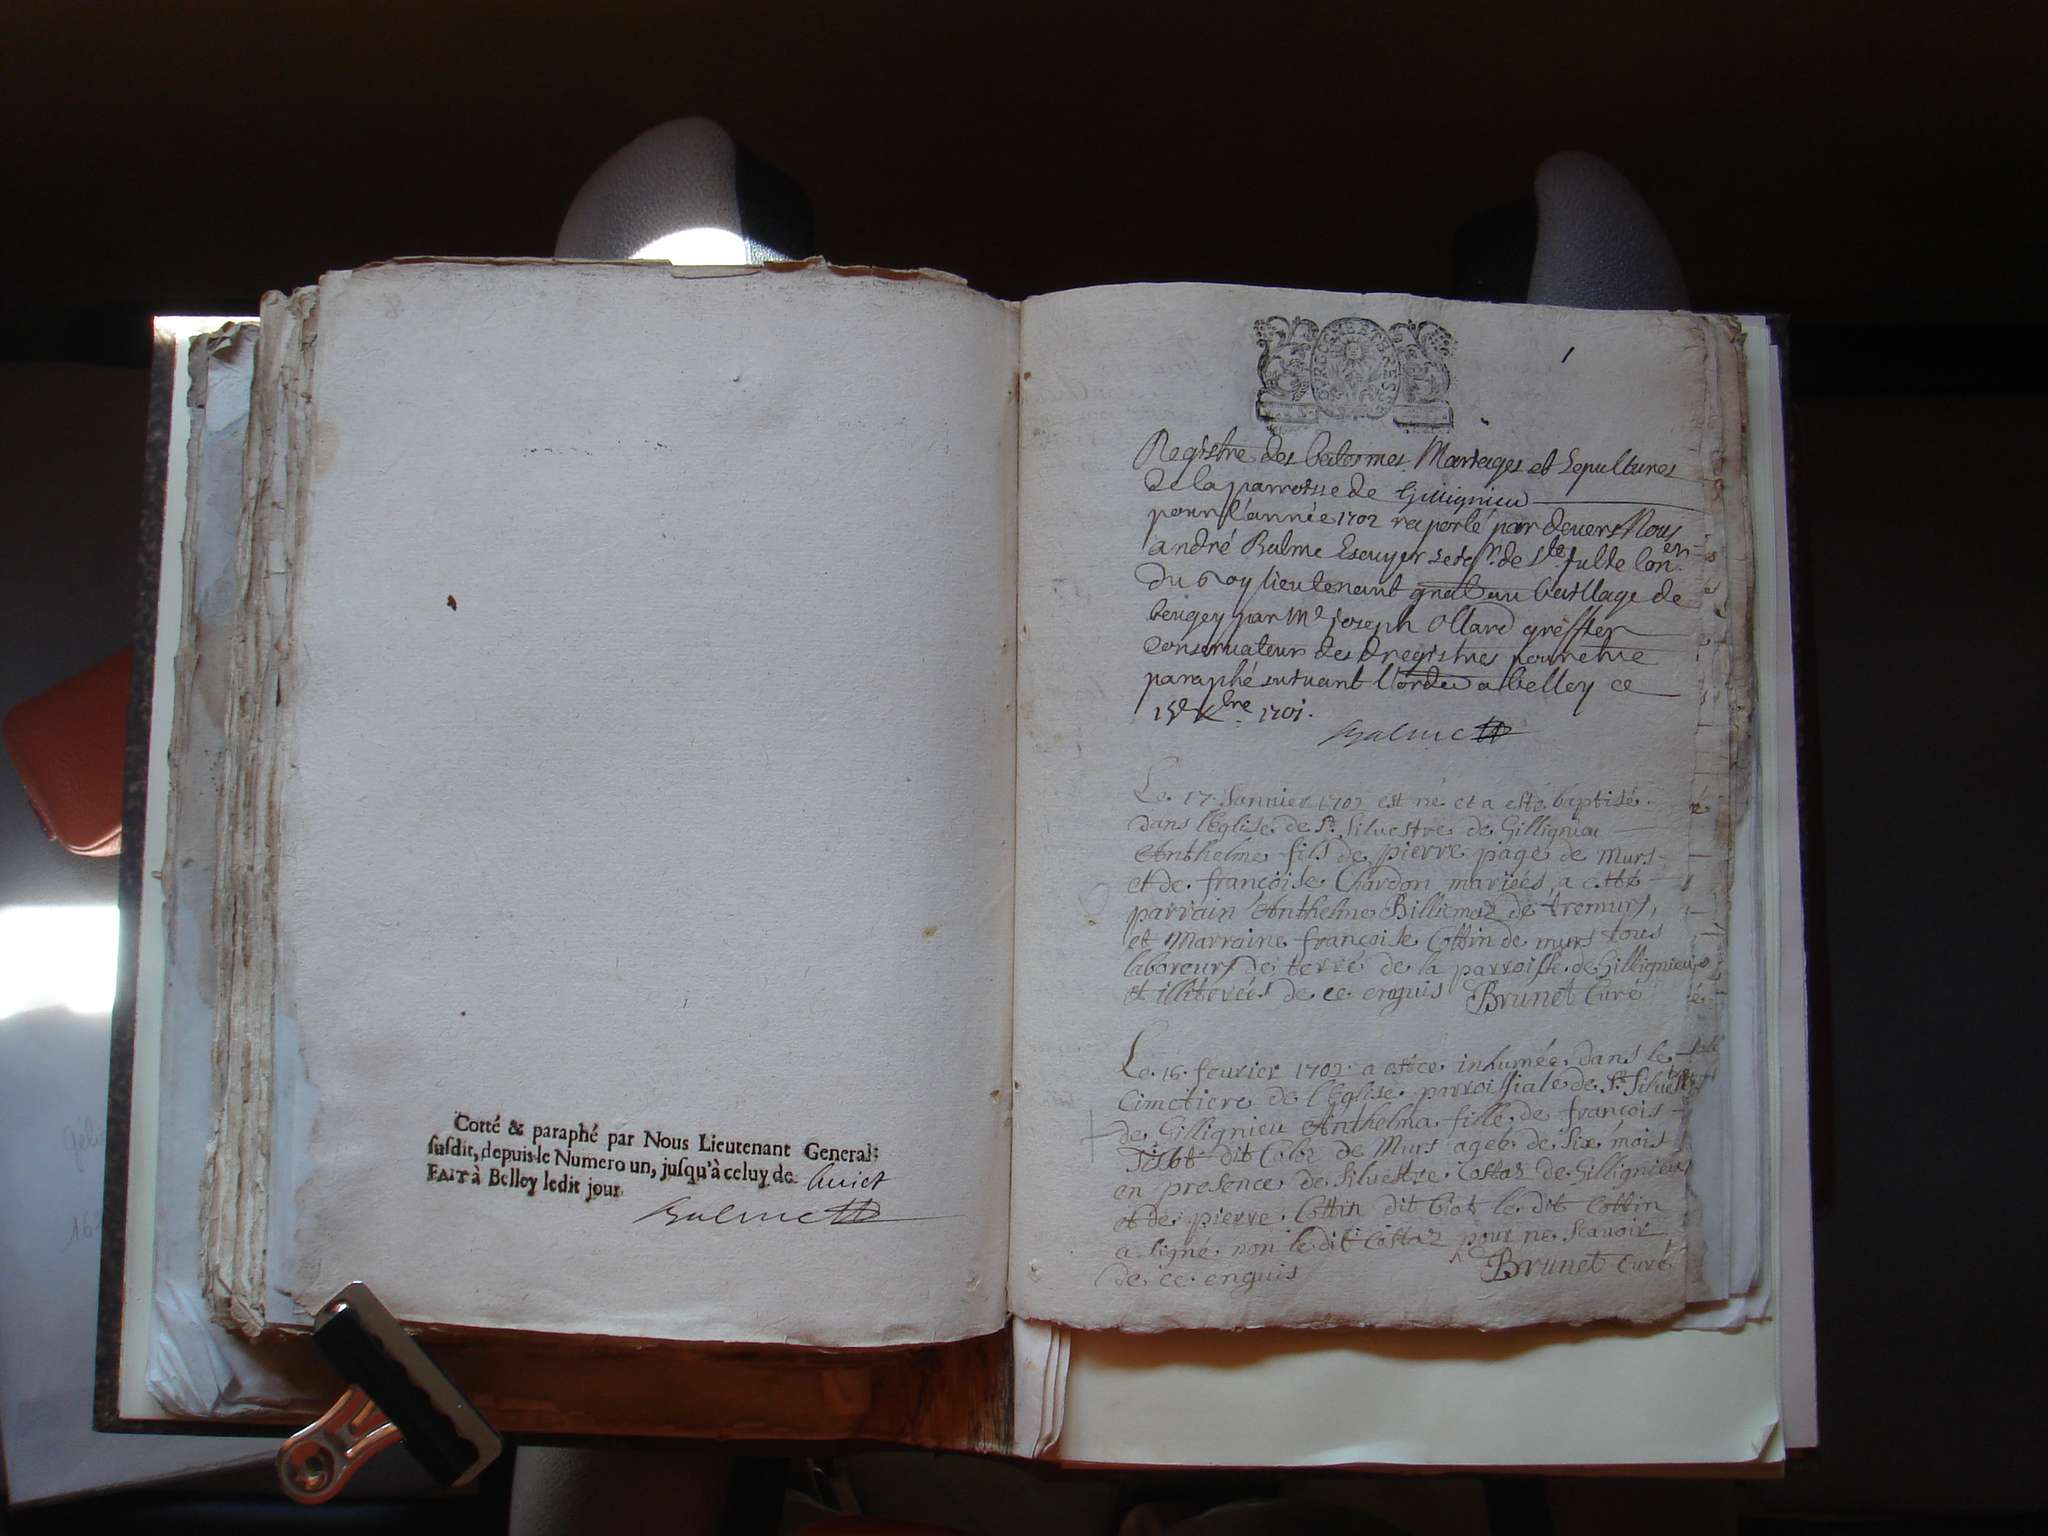 Cotté & paraphé par Nous Lieutenant General
susdit, depuis le Numero un, jusqu'à celuy de huict
FAIT à Belley ledit jour
Balme
1
Registre des batesmes Mariages et Sepultures
de la parroisse de Gillignieu
pour l'année 1702 raporté par devers Nous
andré Balme Escuyer de Ste Julde Con.en
du Roy lieutenant gnal au baillage de
beugey par Me joseph Ollard greffier
Conservateur des registres pour etre
paraphé suivant l'ordre a belley ce
15e Xbre 1701.
Balme
Le 17 Jannier 1702 est né et a esté baptisé
dans l'Eglise de St Siluestre de Gillignieu
Anthelme fils de pierre page de Murs
et de françoise Chardon mariées a estté
parrain Anthelme Billiemaz de tremurs,
et Marraine françoise Cottin de murs tous
laboreurs de terre de la parroisse de Gillignieu
et illiterées de ce enquis Brunet Curé
Le 16 feurier 1702 a estee inhumée dans le
Cimetiere de l'Eglise parroissiale de St Siluestre
de Gillignieu Anthelma fille de françois
dit de Murs ageé de six mois
en presence de Siluestre Costaz de Gillignieu
et de pierre Cottin dit biot le dit Cottin
a signé non le dit Costaz pour ne scauoir
de ce enquis Brunet Curé